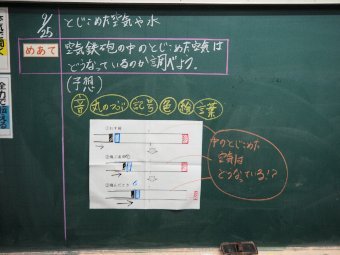 9/25
とじこめた空気や水
めあて
空気鉄砲の中のとじこめた空気は
どうなっているのか調べよう。
(予想)
音 丸のスジ 記号 色 線 言葉
①おす前
中のとじこめた
空気は
どうなっている!?
全力で伝える